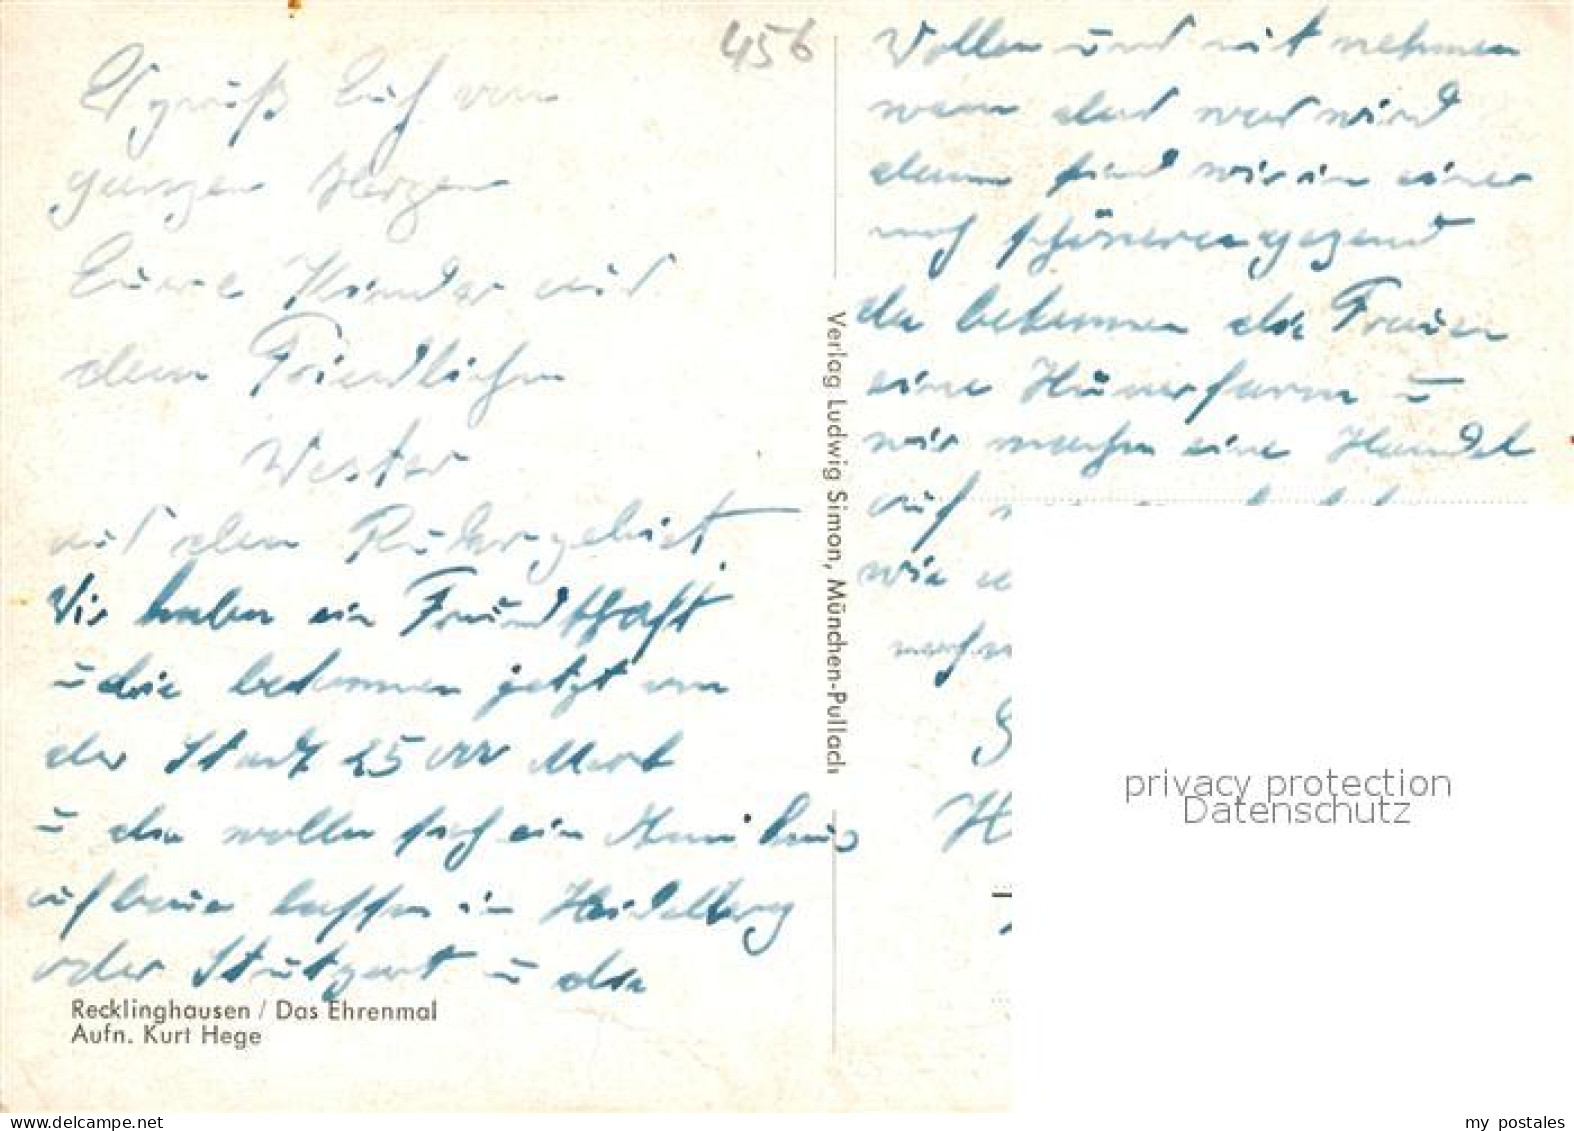 456
Es grüßt Euch von
ganzen Herzen
Eure Kinder aus
dem Friedlichen
Westen
aus den Ruhrgebiet.
Wir haben ein Freundschaft
u die bekommen jetzt von
der Stadt 25 000 Mark
u die wollen sich ein
aufbaue lassen in Heidelberg
oder Stutgart u die
Recklinghausen / Das Ehrenmal
Aufn. Kurt Hege
Verlag Ludwig Simon, München-Pullach
Wollen uns mit nehmen
wenn das was wird
dann sind wir in einer
noch schöneren gegend
da bekommen die Frauen
eine Hünerfarm u
wir machen eine Handel
auf
wie
noch
privacy protection
Datenschutz
delcampe.net
my postales